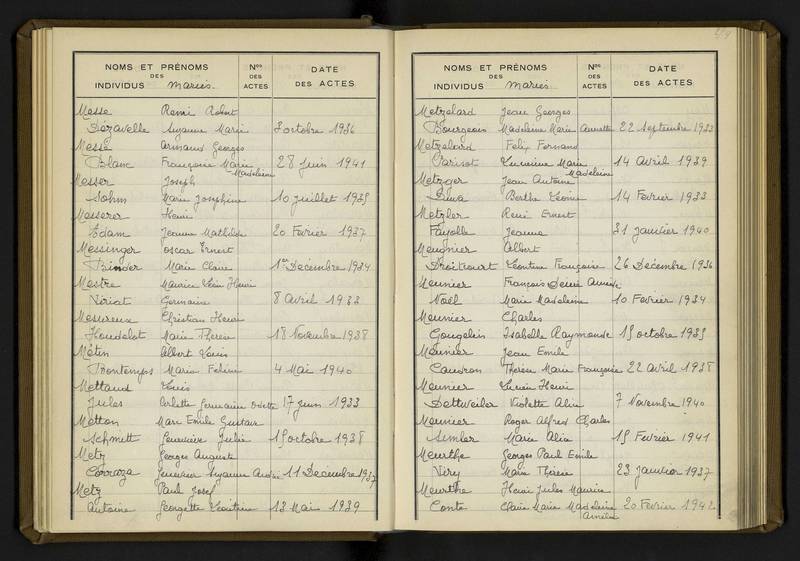 NOMS ET PRÉNOMS DES INDIVIDUS Mariés. Nos DES ACTES DATE DES ACTES
Messe Remi Robert
Dézavelle Suzanne Marie 3 octobre 1936
Messé Armand Georges
Blanc Françoise Marie Madeleine 28 Juin 1941
Messer Joseph
Sohm Marie Joséphine 10 Juillet 1935
Messerer Henri
Edam Jeanne Mathilde 20 Février 1937
Messinger Oscar Ernest
Binder Marie Claire 1er Décembre 1934
Mestre Maurice Léon Henri
Viriat Germaine 8 Avril 1933
Mesureux Christian Henri
Houdelot Marie Thérèse 18 Novembre 1938
Métin Albert Louis
Printemps Marie 4 Mai 1940
Mettaud Louis
Jules Arlette Germaine Odette 17 Juin 1933
Metton Marc Emile Gustave
Schmitt Geneviève Julie 15 octobre 1938
Metz Georges Auguste
Carraza Geneviève Suzanne 11 Décembre 1937
Metz Paul Josef
Antoine Georgette 13 Mai 1939
NOMS ET PRÉNOMS DES INDIVIDUS Mariés. Nos DES ACTES DATE DES ACTES
Metzelard Jean Georges
Bourgeois Madeleine Marie Annette 22 Septembre 1933
Metzelard Félix Fernand
Parisot Lucienne Marie Madeleine 14 Avril 1939
Metzger Jean Antoine
Berthe Léonie 14 Février 1933
Metzler René Ernest
Fayolle Jeanne 31 Janvier 1940
Meugnier Albert
Droitcourt Léontine Françoise 26 Décembre 1936
Meunier François Denis
Noël Marie Madeleine 10 Février 1934
Meunier Charles
Gougelin Isabelle Raymonde 15 octobre 1935
Meunier Jean Emile
Caudron Thérèse Marie Françoise 22 Avril 1938
Meunier Lucien Henri
Dettweiler Violette Alice 7 Novembre 1940
Meunier Roger Alfred Charles
Simler Marie Alice 15 Février 1941
Meurthe Georges Paul Emile
Viry Marie Thérèse 23 Janvier 1937
Meurthe Henri Jules Maurice
Conte Claire Marie Madeleine Amélie 20 Février 1942